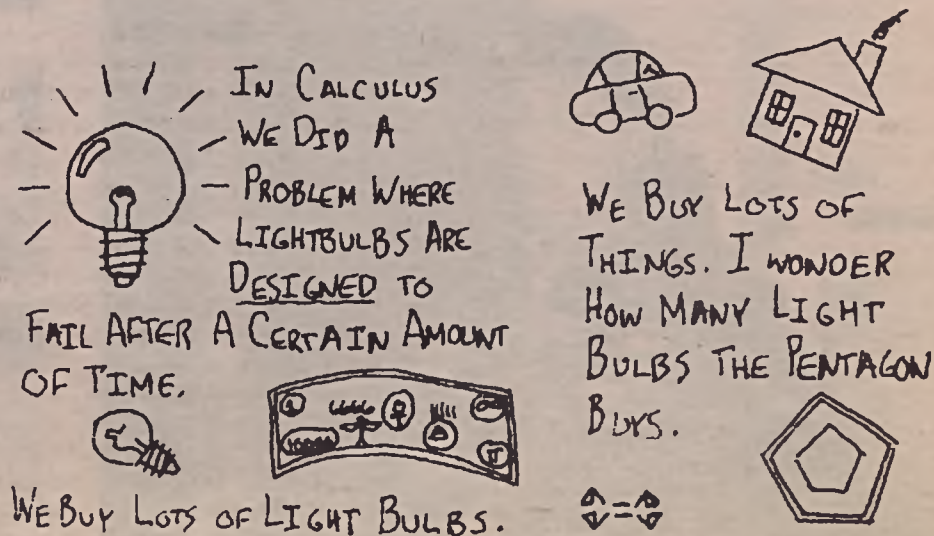 In Calculus
We Did A
Problem Where
Lightbulbs Are
Designed to
Fail After A Certain Amount
of Time.
We Buy Lots of Light Bulbs.
We Buy Lots of
Things. I wonder
How Many Light
Bulbs The Pentagon
Buys.